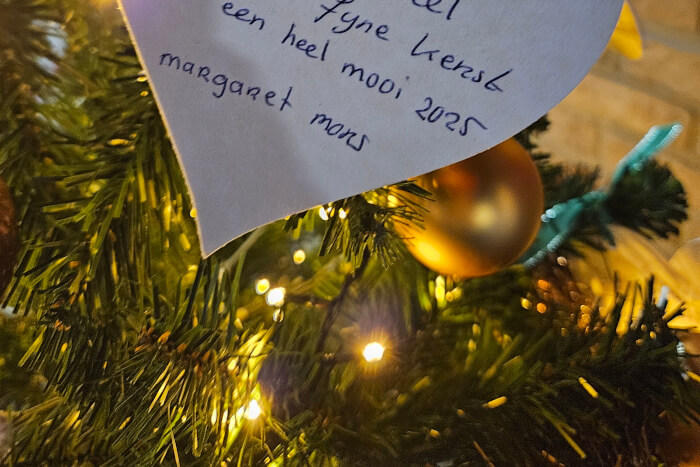 fyne kerst
een heel mooi 2025
margaret mons